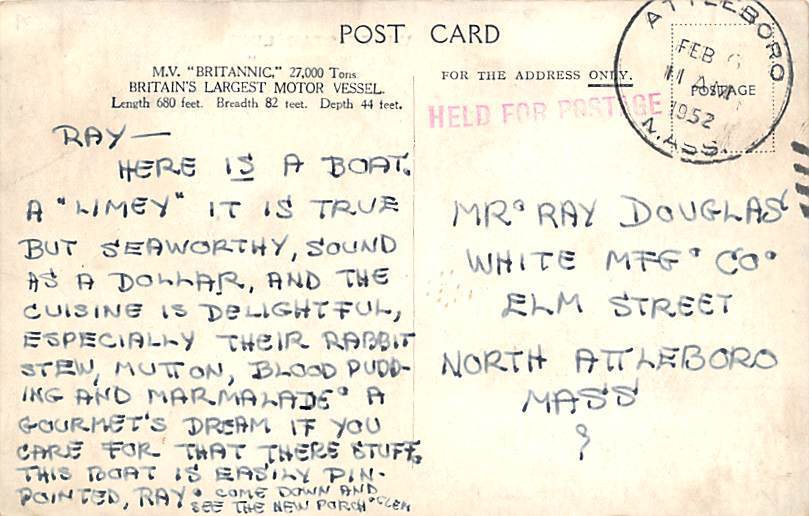 POST CARD
M.V. "BRITANNIC," 27,000 Tons
BRITAIN'S LARGEST MOTOR VESSEL.
Length 680 feet. Breadth 82 feet. Depth 44 feet.
RAY —
HERE IS A BOAT.
A "LIMEY" IT IS TRUE
BUT SEAWORTHY, SOUND
AS A DOLLAR, AND THE
CUISINE IS DELIGHTFUL,
ESPECIALLY THEIR RABBIT
STEW, MUTTON, BLOOD PUDD-
ING AND MARMALADE. A
GOURMET'S DREAM IF YOU
CARE FOR THAT THERE STUFF.
THIS BOAT IS EASILY PIN-
POINTED, RAY. COME DOWN AND
SEE THE NEW PORCH. CLEM
FOR THE ADDRESS ONLY.
HELD FOR POSTAGE
ATTLEBORO
FEB 6
11 AM
1952
MASS.
POSTAGE
MR. RAY DOUGLAS
WHITE MFG. CO.
ELM STREET
NORTH ATTLEBORO
MASS